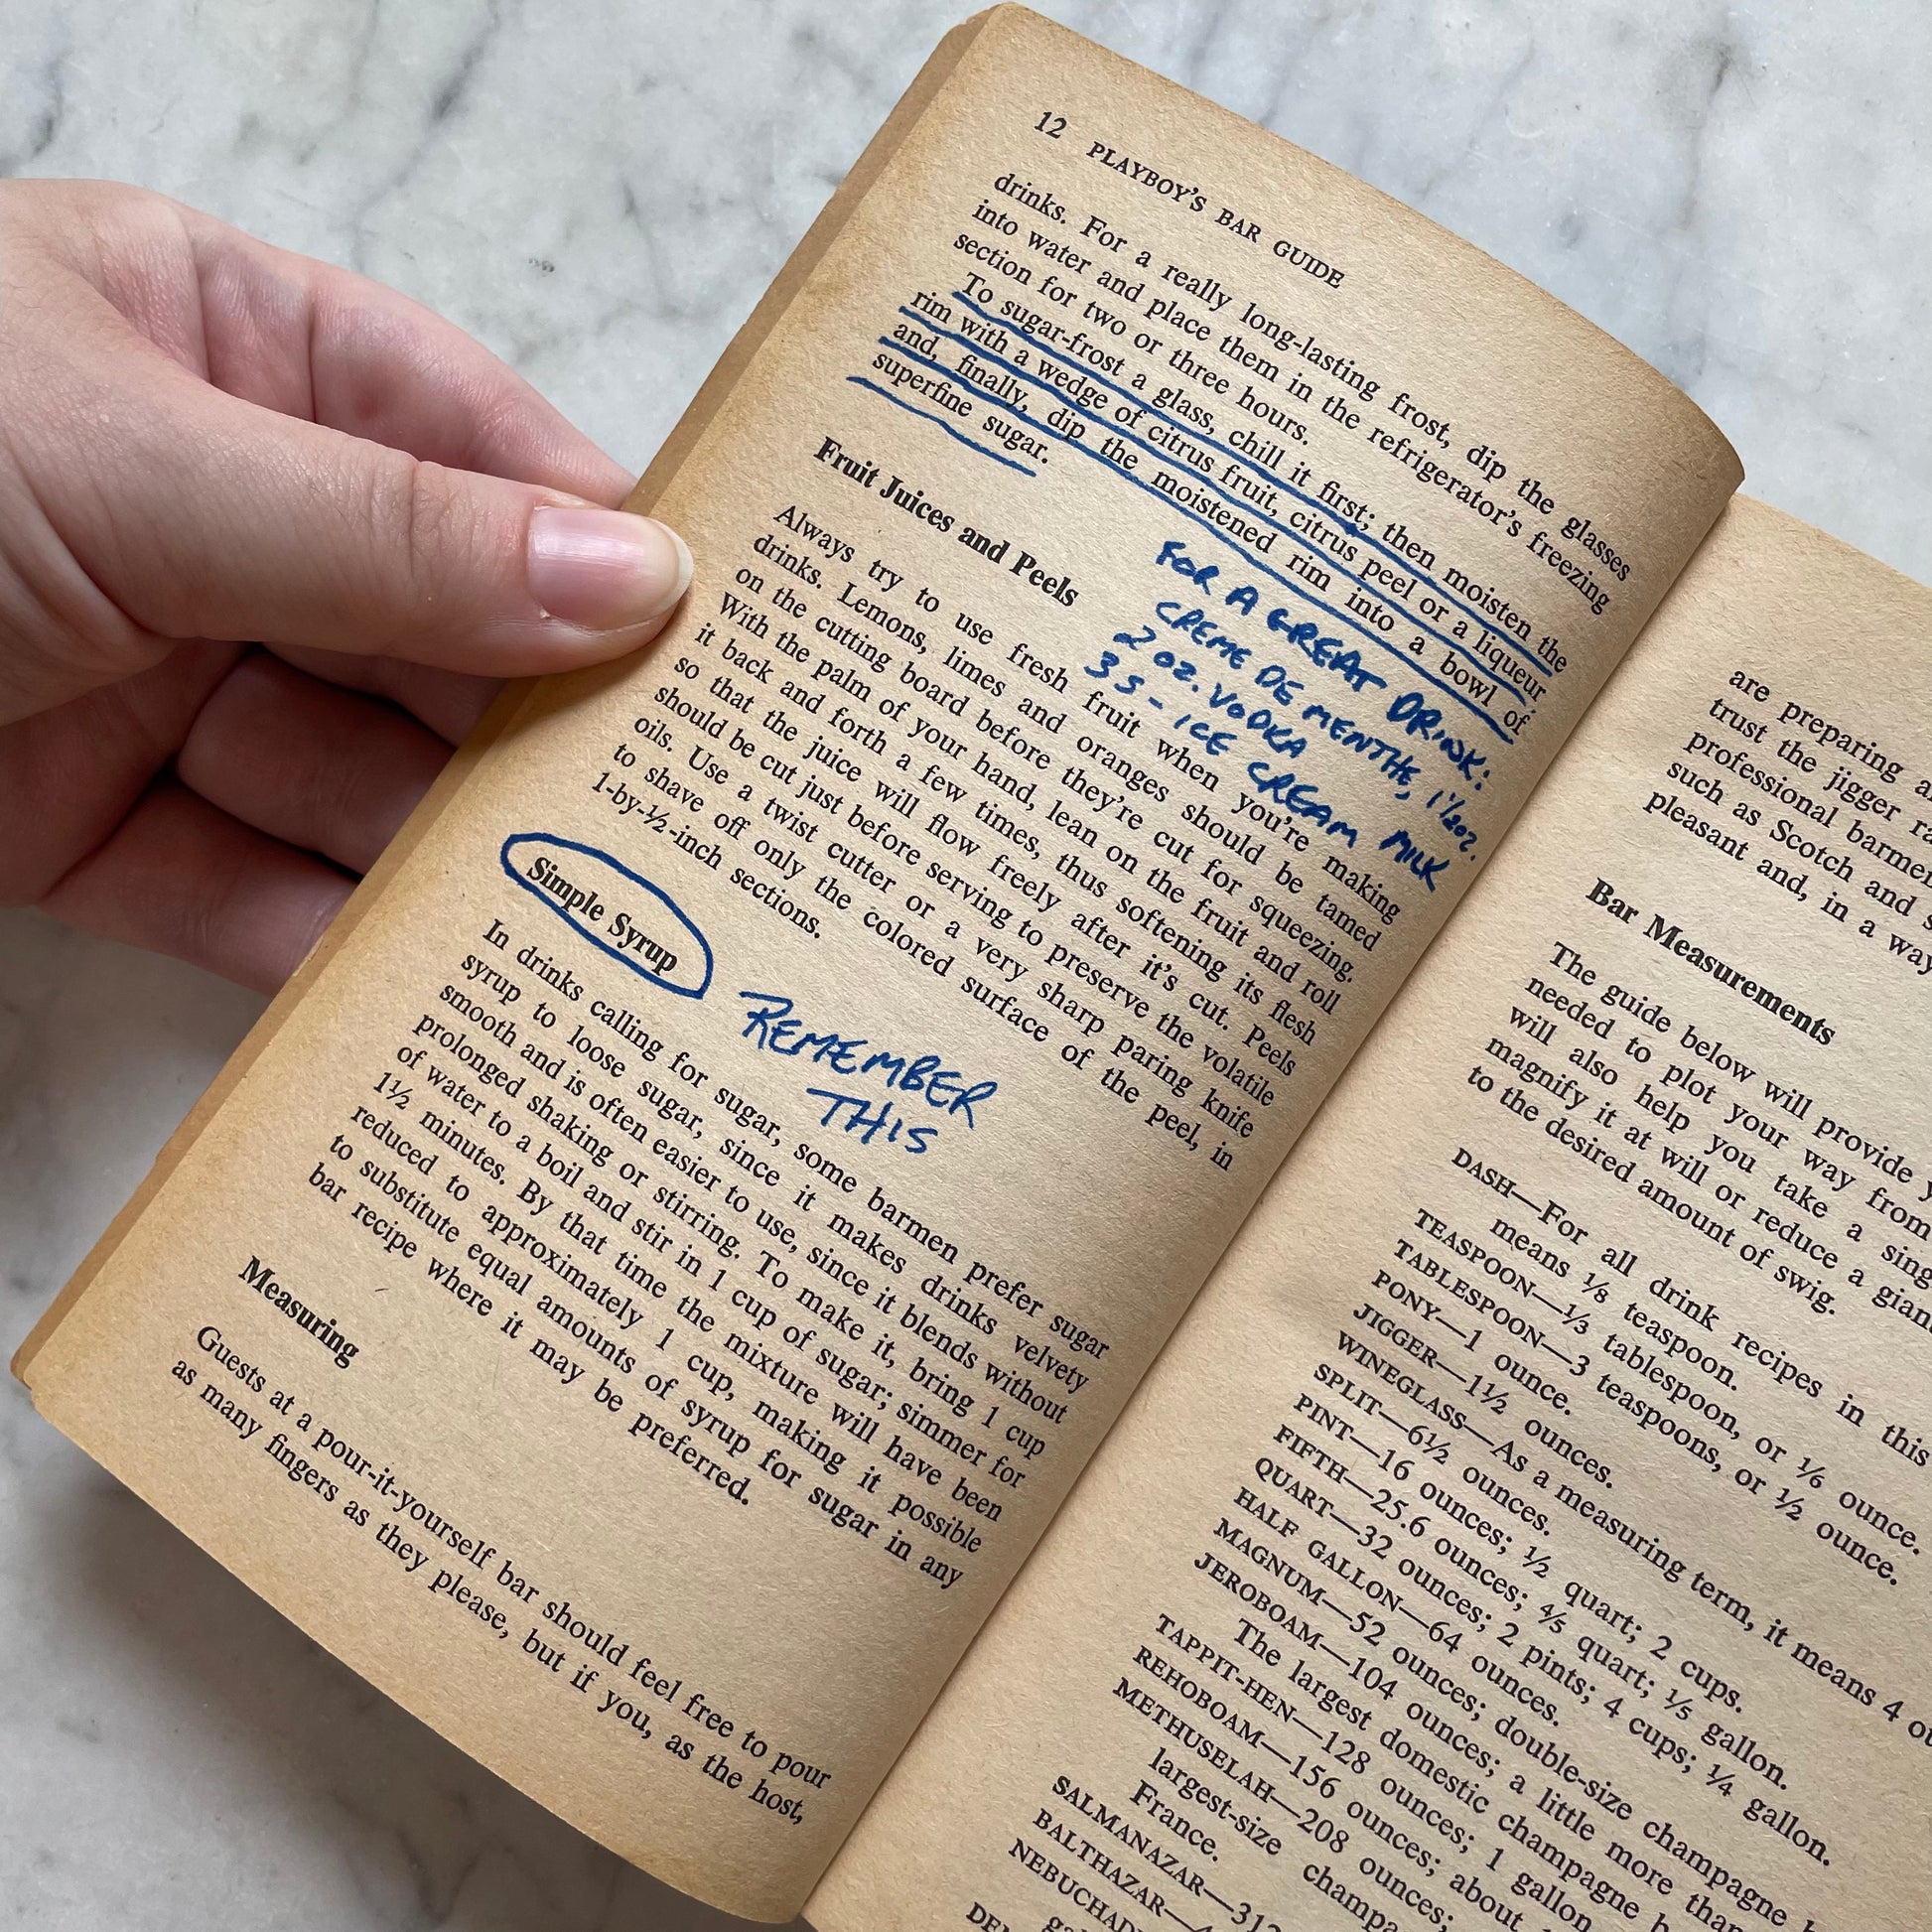 12 PLAYBOY'S BAR GUIDE
drinks. For a really long-lasting frost, dip the glasses
into water and place them in the refrigerator's freezing
section for two or three hours.
To sugar-frost a glass, chill it first; then moisten the
rim with a wedge of citrus fruit, citrus peel or a liqueur
and, finally, dip the moistened rim into a bowl of
superfine sugar.
FOR A GREAT DRINK:
CREME DE MENTHE, 1 1/2 OZ.
2 OZ. VODKA
3 S - ICE CREAM MILK
Fruit Juices and Peels
Always try to use fresh fruit when you're making
drinks. Lemons, limes and oranges should be tamed
on the cutting board before they're cut for squeezing.
With the palm of your hand, lean on the fruit and roll
it back and forth a few times, thus softening its flesh
so that the juice will flow freely after it's cut. Peels
should be cut just before serving to preserve the volatile
oils. Use a twist cutter or a very sharp paring knife
to shave off only the colored surface of the peel, in
1-by-½-inch sections.
Simple Syrup
REMEMBER
THIS
In drinks calling for sugar, some barmen prefer sugar
syrup to loose sugar, since it makes drinks velvety
smooth and is often easier to use, since it blends without
prolonged shaking or stirring. To make it, bring 1 cup
of water to a boil and stir in 1 cup of sugar; simmer for
1½ minutes. By that time the mixture will have been
reduced to approximately 1 cup, making it possible
to substitute equal amounts of syrup for sugar in any
bar recipe where it may be preferred.
Measuring
Guests at a pour-it-yourself bar should feel free to pour
as many fingers as they please, but if you, as the host,
are preparing
trust the jigger
professional
such as Scotch and
pleasant and, in a way
Bar Measurements
The guide below will provide
needed to plot your way from
will also help you take a
magnify it at will or reduce a
to the desired amount of swig.
DASH—For all drink recipes in this
means ⅛ teaspoon.
TEASPOON—⅓ tablespoon, or ⅙ ounce.
TABLESPOON—3 teaspoons, or ½ ounce.
PONY—1 ounce.
JIGGER—1½ ounces.
WINEGLASS—As a measuring term, it means 4
SPLIT—6½ ounces.
PINT—16 ounces; ½ quart; 2 cups.
FIFTH—25.6 ounces; ⅘ quart; ⅕ gallon.
QUART—32 ounces; 2 pints; 4 cups; ¼ gallon.
HALF GALLON—64 ounces.
MAGNUM—52 ounces; double-size champagne
JEROBOAM—104 ounces; a little more than
The largest domestic champagne
TAPPIT-HEN—128 ounces; 1 gallon
REHOBOAM—156 ounces;
METHUSELAH—208 ounces; about
largest-size
France.
SALMANAZAR—312
BALTHAZAR